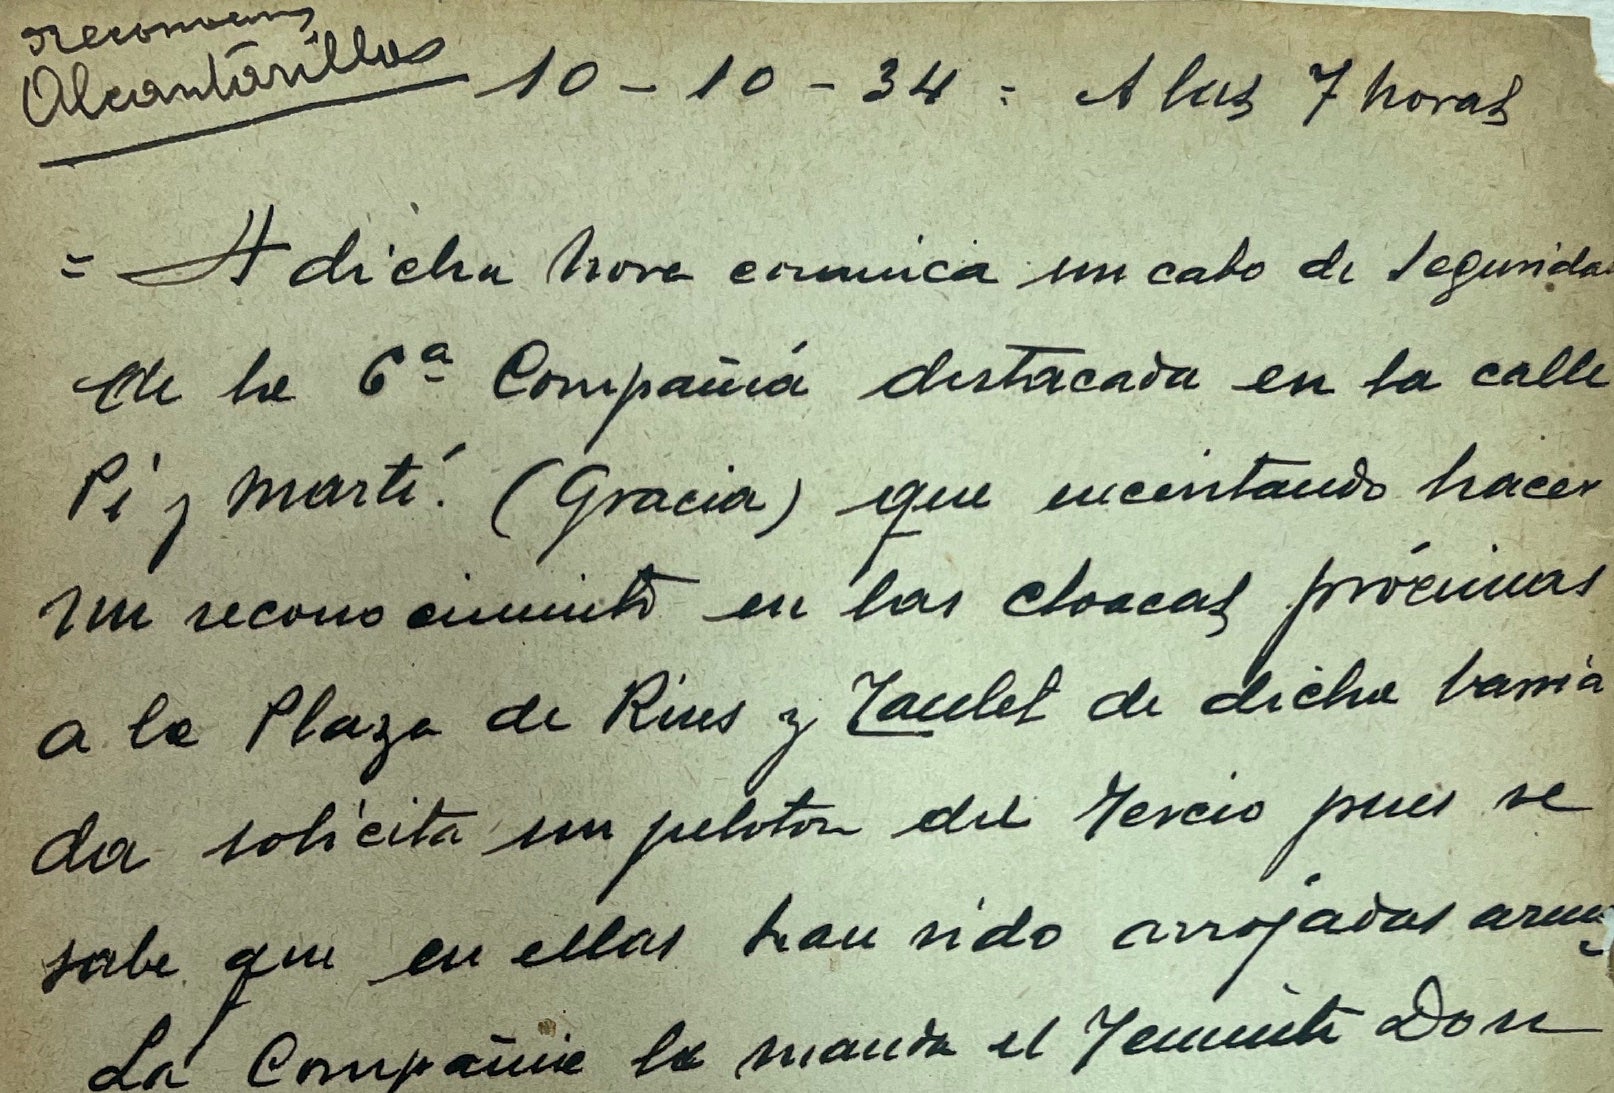 Reconocer
Alcantarillas
10 - 10 - 34 = A las 7 horas
= A dicha hora comunica un cabo de Seguridad
de la 6ª Compañiá destacada en la calle
Pi y Martí. (Gracia) que necesitando hacer
un reconocimiento en las cloacas próximas
a la Plaza de Rius y Taulet de dicha barria
da solicita un peloton del Tercio pues se
sabe que en ellas han sido arrojadas armas
La Compañia la manda el Teniente Don